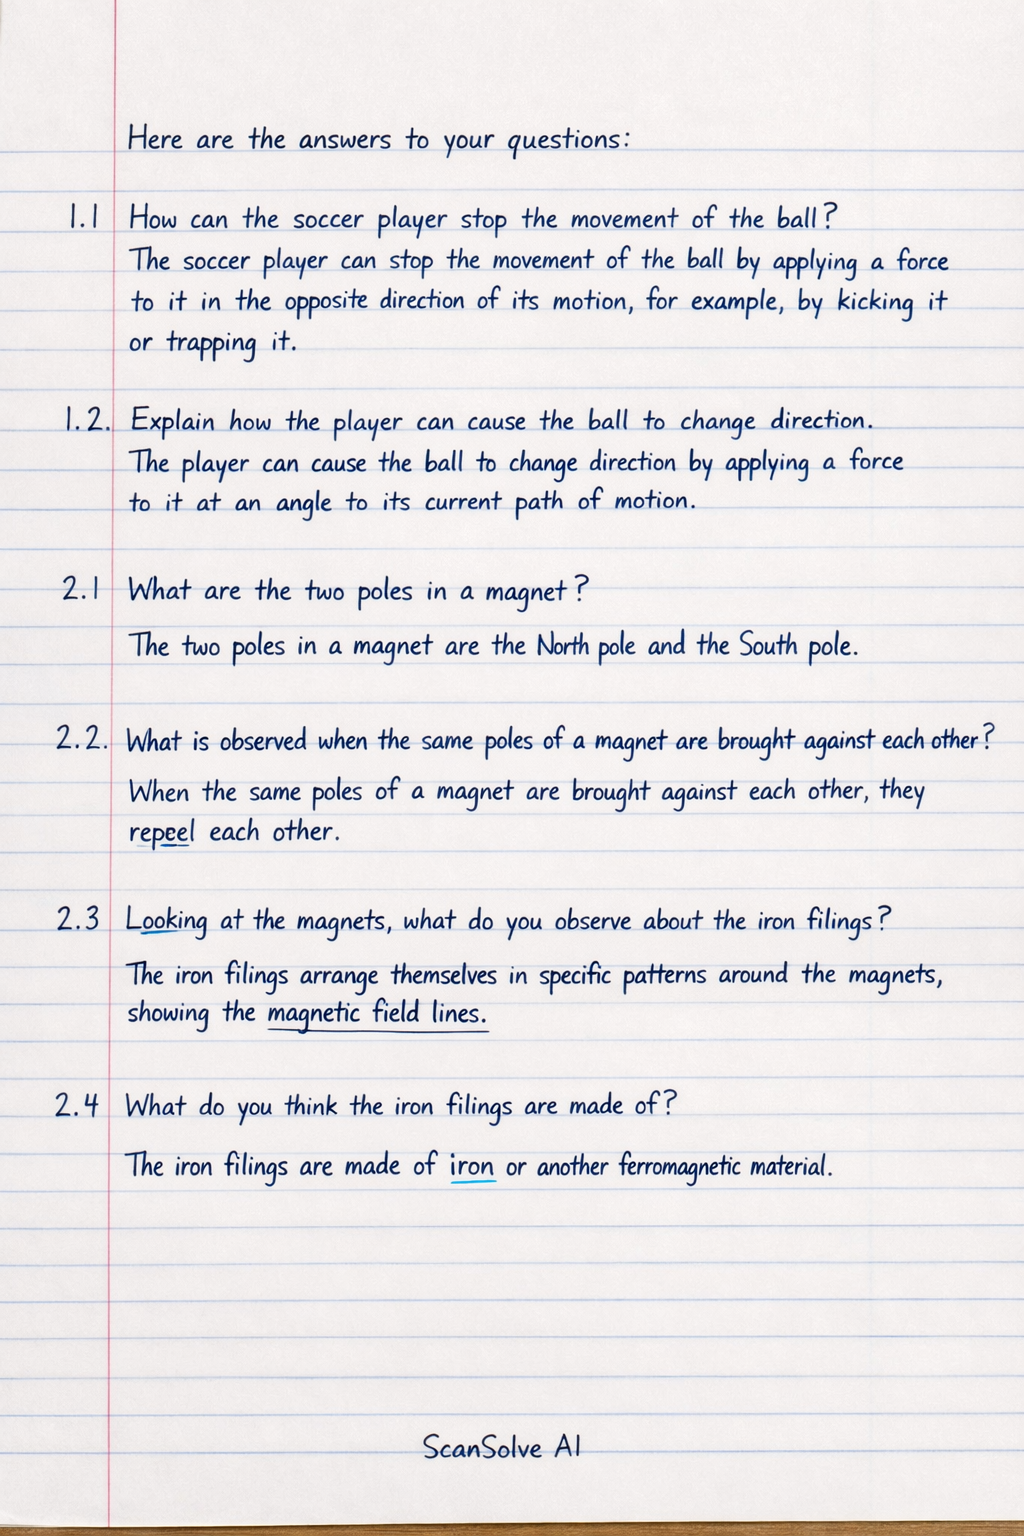 Here are the answers to your questions:
1.1 How can the soccer player stop the movement of the ball?
The soccer player can stop the movement of the ball by applying a force
to it in the opposite direction of its motion, for example, by kicking it
or trapping it.
1.2. Explain how the player can cause the ball to change direction.
The player can cause the ball to change direction by applying a force
to it at an angle to its current path of motion.
2.1 What are the two poles in a magnet?
The two poles in a magnet are the North pole and the South pole.
2.2. What is observed when the same poles of a magnet are brought against each other?
When the same poles of a magnet are brought against each other, they
repeel each other.
2.3 Looking at the magnets, what do you observe about the iron filings?
The iron filings arrange themselves in specific patterns around the magnets,
showing the magnetic field lines.
2.4 What do you think the iron filings are made of?
The iron filings are made of iron or another ferromagnetic material.
ScanSolve AI